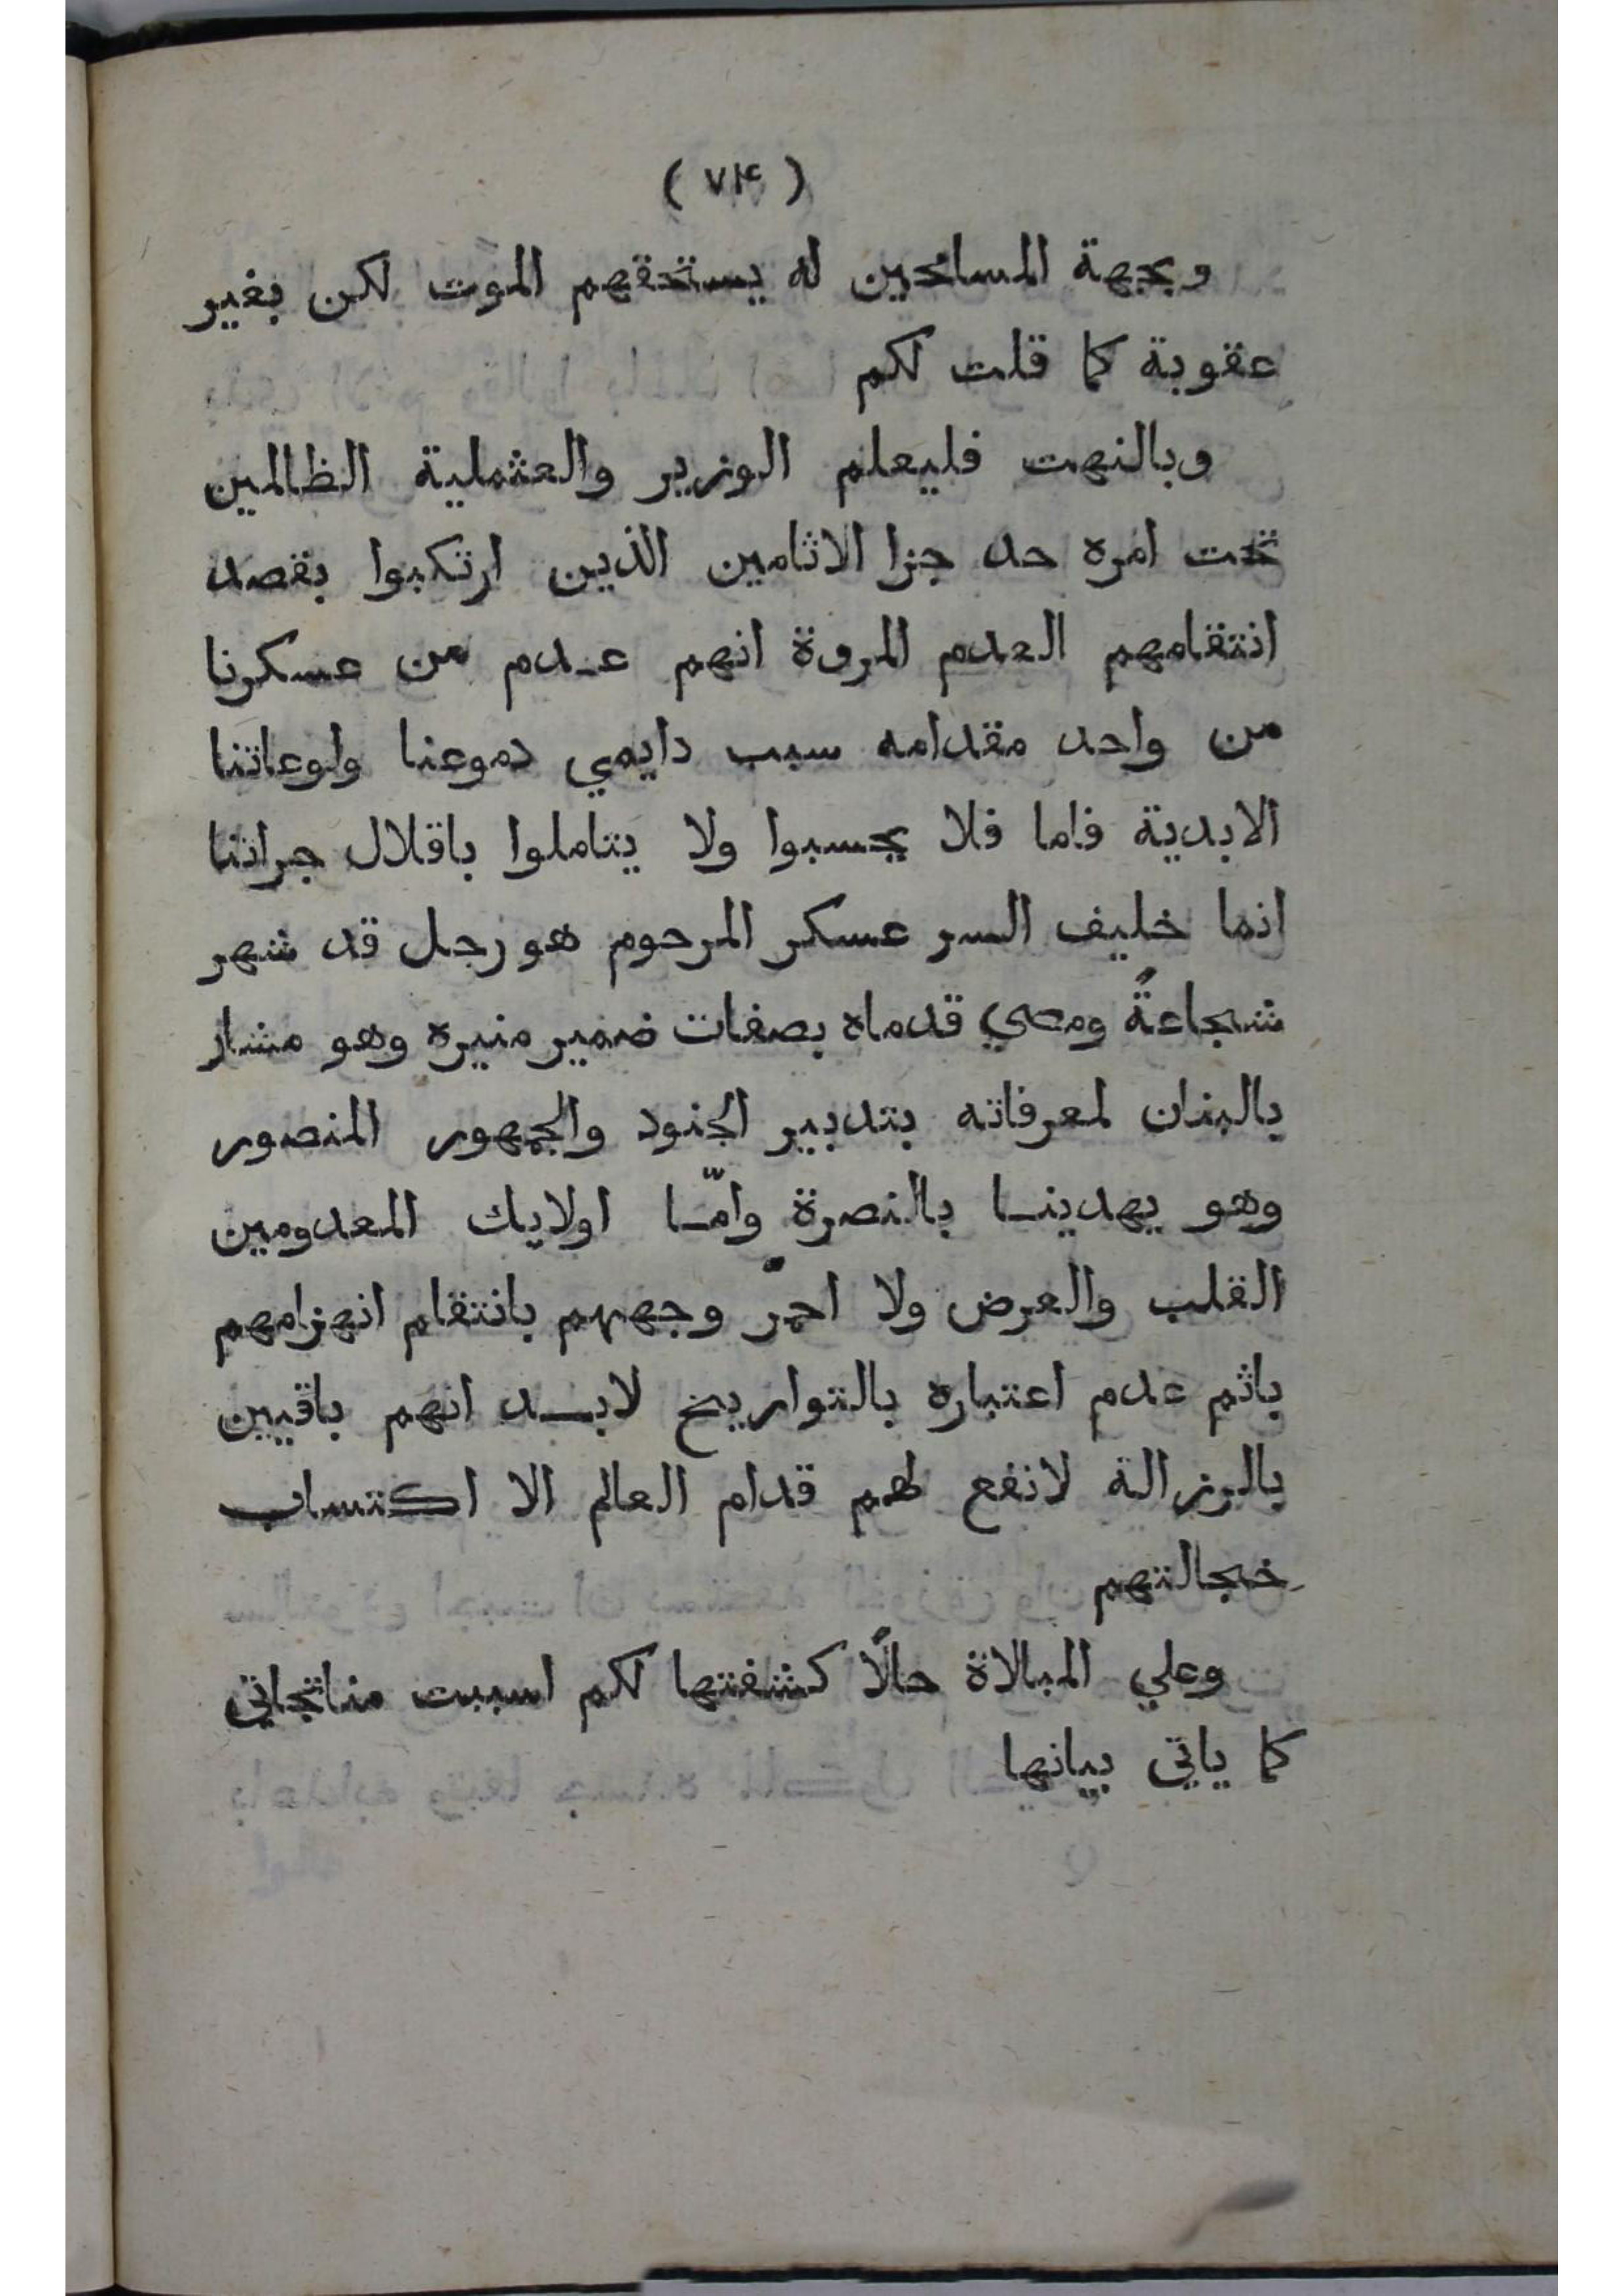 ( ٧٤ )
وبجهة المسامحين له يستحقهم الموت لكن بغير
عقوبة كما قلت لكم
وبالنهت فليعلم الوزير والعثملية الظالمين
تحت امره حد جزا الاثامين الذين ارتكبوا بقصد
انتقامهم العدم المروة انهم عدم من عسكرنا
من واحد مقدامه سبب دايمي دموعنا ولوعاتنا
الابدية فاما فلا يحسبوا ولا يتاملوا باقلال جراتنا
انما خليف السر عسكر المرحوم هو رجل قد شهر
شجاعةً ومضي قدماه بصفات ضمير منيره وهو مشار
بالبنان لمعرفاته بتدبير الجنود والجمهور المنصور
وهو يهدينا بالنصرة وامّا اولايك المعدومين
القلب والعرض ولا احمرّ وجههم بانتقام انهزامهم
باثم عدم اعتباره بالتواريخ لابد انهم باقيين
بالرزالة لانفع لهم قدام العالم الا اكتساب
خجالتهم
وعلي المبالاة حالًا كشفتها لكم اسببت مناتجاتي
كما ياتي بيانها